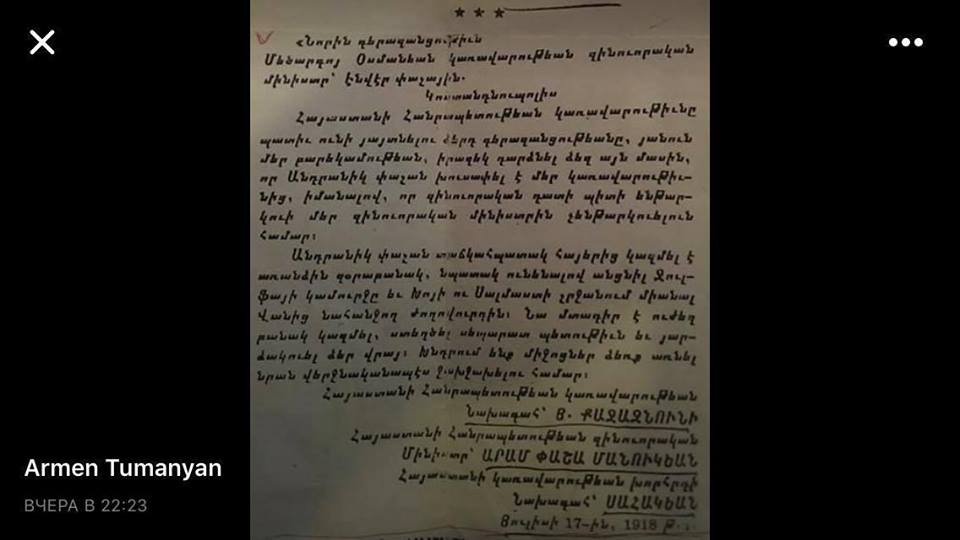 ★ ★ ★
«Նորին գերազանցութիւն
Մեծարգոյ Օսմանեան կառավարութեան զինուորական
մինիստր՝ Էնվէր փաշային.
Կոստանդնուպոլիս
Հայաստանի Հանրապետութեան կառավարութիւնը
պատիւ ունի յայտնելու ձերդ գերազանցութեանը, յանուն
մեր բարեկամութեան, իրազեկ դարձնել ձեզ այն մասին,
որ Անդրանիկ փաշան խուսափել է մեր կառավարութիւ-
նից, իմանալով, որ զինուորական դատի պիտի ենթար-
կուի մեր զինուորական մինիստրին չենթարկուելուն
համար։
Անդրանիկ փաշան տաճկահպատակ հայերից կազմել է
առանձին զօրաբանակ, նպատակ ունենալով անցնիլ Ջուլ-
ֆայի կամուրջը եւ Խոյի ու Սալմաստի շրջանում միանալ
Վանից նահանջող ժողովուրդին։ Նա մտադիր է ուժեղ
բանակ կազմել, ստեղծել սեպարատ պետութիւն եւ յար-
ձակուել ձեր վրայ։ Խնդրում ենք միջոցներ ձեռք առնել
նրան վերջնականապէս ջախջախելու համար։
Հայաստանի Հանրապետութեան կառավարութեան
Նախագահ՝ Յ. ՔԱՋԱԶՆՈՒՆԻ
Հայաստանի Հանրապետութեան զինուորական
Մինիստր՝ ԱՐԱՄ ՓԱՇԱ ՄԱՆՈՒԿԵԱՆ
Հայաստանի կառավարութեան խորհրդի
Նախագահ՝ ՍԱՀԱԿԵԱՆ
Յուլիսի 17-ին, 1918 թ.
Armen Tumanyan
ВЧЕРА В 22:23